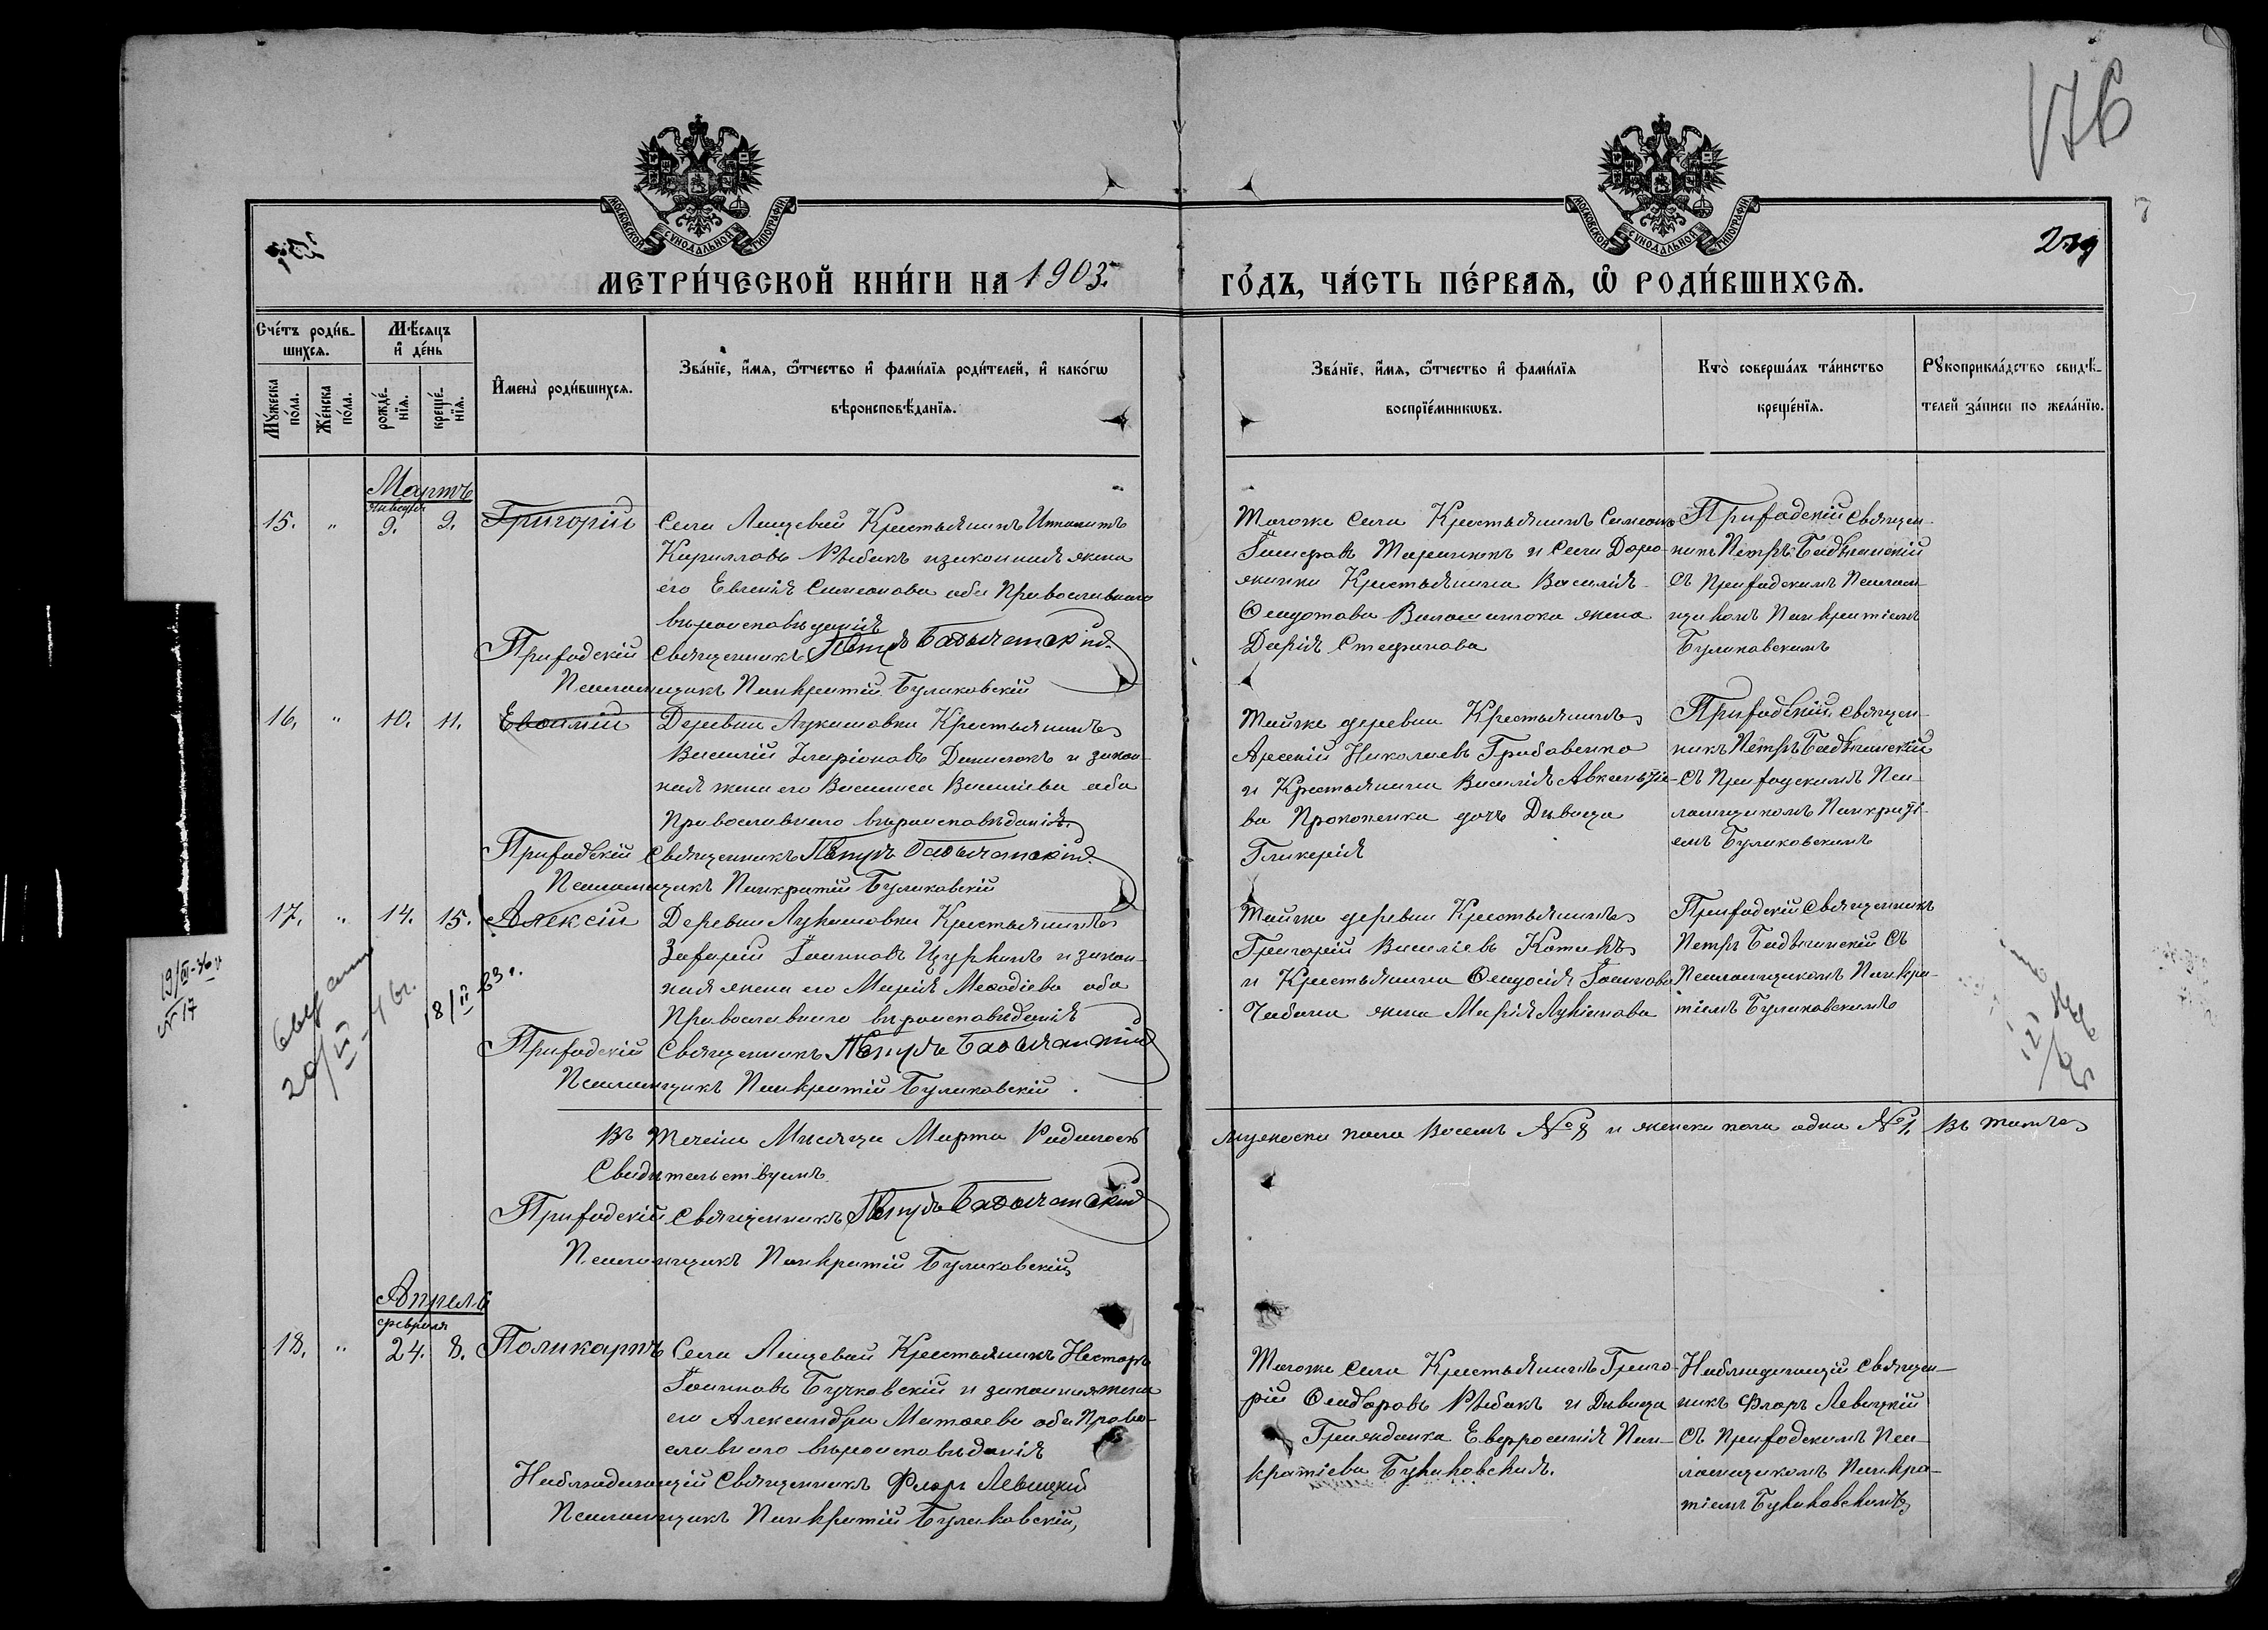 176
МОСКОВСКОЙ СУНОДАЛЬНОЙ ТИПОГРАФІИ
МОСКОВСКОЙ СУНОДАЛЬНОЙ ТИПОГРАФІИ
МЕТРИ́ЧЕСКОЙ КНИ́ГИ НА 1903.
ГО́ДЪ, ЧА́СТЬ ПЕ́РВАѦ, Ѽ РОДИ́ВШИХСѦ.
Сче́тъ роди́в-
шихсѧ.
Мѣ́сѧцъ
и҆ де́нь
Мꙋ́жеска
по́ла.
Же́нска
по́ла.
рожде́-
нїѧ.
креще́-
нїѧ.
И҆мена̀ роди́вшихсѧ.
Зва́нїе, и҆́мѧ, ѻ҆́тчество и҆ фами́лїѧ роди́телей, и҆ како́гѡ
вѣроисповѣ́данїѧ.
Зва́нїе, и҆́мѧ, ѻ҆́тчество и҆ фами́лїѧ
воспрїе́мникѡвъ.
Кто̀ соверша́лъ та́инство
креще́нїѧ.
Рꙋкоприкла́дство свидѣ́-
телей за́писи по жела́нїю.
Мартъ
15. " 9. 9. Григорій
Села Лещевай Крестьянинъ Ипполитъ
Кирилловъ Рыбакъ и законная жена
его Евгенія Симеонова оба Православнаго
вѣроисповѣданія
Приходскій Священникъ Петръ Бадычанскій
Псаломщикъ Панкратій Буликовскій
Тогоже села Крестьянинъ Симеонъ
и Села Доро-
жинки Крестьянина Василія
Федотова жена
Дарія Стефанова
Приходскій Священ-
никъ Петръ Бадычанскій
съ Приходскимъ Псалом-
щикомъ Панкратіемъ
Буликовскимъ
16. " 10. 11. Евѳимій
Деревни Лукашовки Крестьянинъ
Василій Иларіоновъ Данилюкъ и закон-
ная жена его Василиса Василіева оба
Православнаго вѣроисповѣданія.
Приходскій Священникъ Петръ Бадычанскій
Псаломщикъ Панкратій Буликовскій
Тойже деревни Крестьянинъ
Арсеній Николаевъ Грабовенко
и Крестьянина Василія Авксентіе-
ва Прокопенка дочь Дѣвица
Гликерія
Приходскій Священ-
никъ Петръ Бадычанскій
съ Приходскимъ Пса-
ломщикомъ Панкраті-
емъ Буликовскимъ
17. " 14. 15. Алексій
Деревни Лукашовки Крестьянинъ
Захарій Іоанновъ Цуркинъ и закон-
ная жена его Марія Меѳодіева оба
Православнаго вѣроисповѣданія
Приходскій Священникъ Петръ Бадычанскій
Псаломщикъ Панкратій Буликовскій.
Тойже деревни Крестьянинъ
Григорій Василіевъ Котикъ
и Крестьянина Ѳеодосія Іоаннова
Чабана жена Марія Лукіанова
Приходскій Священникъ
Петръ Бадычанскій съ
Псаломщикомъ Панкра-
тіемъ Буликовскимъ
№17
Въ теченіи Мѣсяца Марта Родилось
мужеска пола Восемь №8 и женска пола одна №1. Въ томъ
Свидѣтельствуемъ.
Приходскій Священникъ Петръ Бадычанскій
Псаломщикъ Панкратій Буликовскій
Апрель
февраля
18. " 24. 8. Поликарпъ
Села Лещевай Крестьянинъ Несторъ
Іоанновъ Бучковскій и законная жена
его Александра Матѳеева оба Право-
славнаго вѣроисповѣданія
Наблюдающій Священникъ Флоръ Левицкій
Псаломщикъ Панкратій Буликовскій,
Тогоже села Крестьянинъ Григо-
рій Ѳеодоровъ Рыбакъ и Дѣвица
Гражданка Евфросинія Пан-
кратіева Буликовская.
Наблюдающій Священ-
никъ Флоръ Левицкій
съ Приходскимъ Пса-
ломщикомъ Панкра-
тіемъ Буликовскимъ